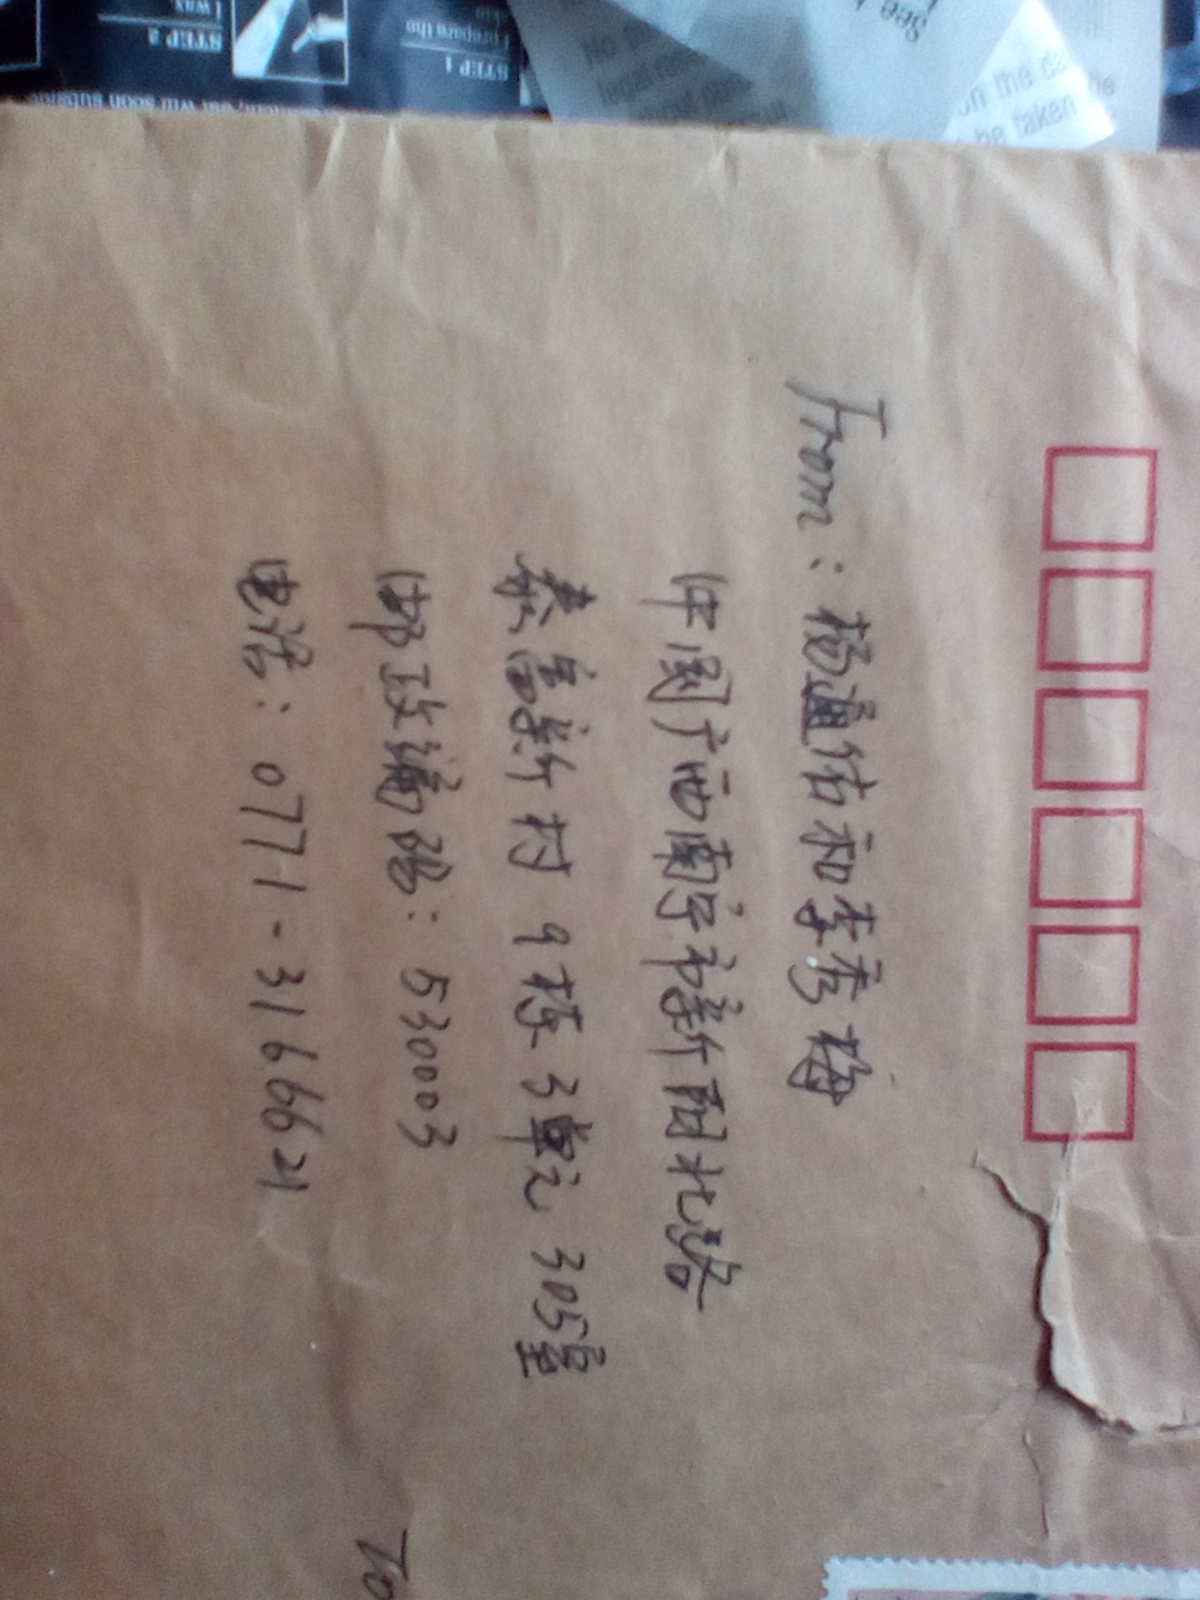 From: 杨通佑和李秀梅
中国广西南宁市新阳北路
泰富新村 9栋 3單元 305室
邮政编码: 530003
电话: 0771-3166621
To
STEP 1
I prepare the
STEP 2
I wax
will soon subside
See
No p
legal re
on the da
be taken
he